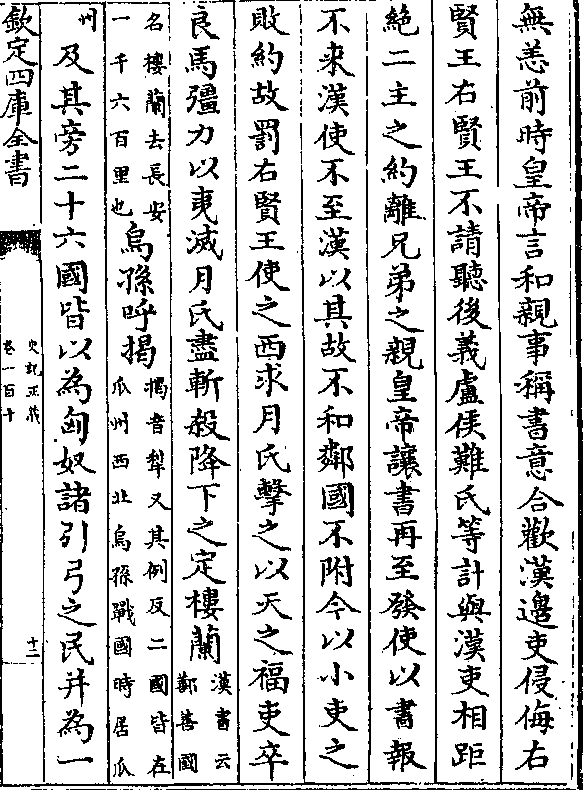 無恙前時皇帝言和親事稱書意合歡漢邊吏侵侮右
賢王右賢王不請聽後義盧侯難氏等計與漢吏相距
絶二主之約離兄弟之親皇帝讓書再至發使以書報
不来漢使不至漢以其故不和鄰國不附今以小吏之
敗約故罰右賢王使之西求月氏擊之以天之福吏卒
良馬彊力以夷滅月氏盡斬殺降下之定樓蘭漢書云鄯善國
名樓蘭去長安一千六百里也烏孫呼揭揭音犁又其例反二國皆在瓜州西北烏孫戰國時居瓜
州及其旁二十六國皆以為匈奴諸引弓之民并為一
欽定四庫全書
史記正義
卷一百十
十二